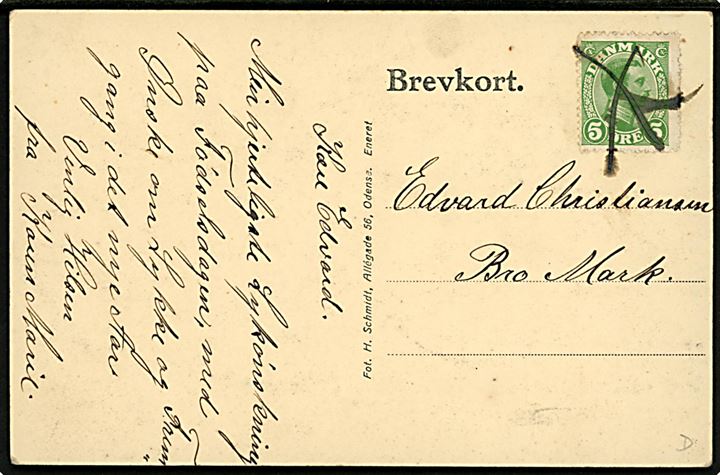 Brevkort.
DANMARK
5 ØRE 5
Edvard Christiansen
Bro Mark.
Fot. H. Schmidt, Allégade 56, Odense. Eneret
Kære Edvard.
Min hjerteligste Lykønskning
paa Fødselsdagen, med
Ønske om Lykke og Frem„
gang i det nye Aar
Venlig Hilsen
fra Karen Marie.
D